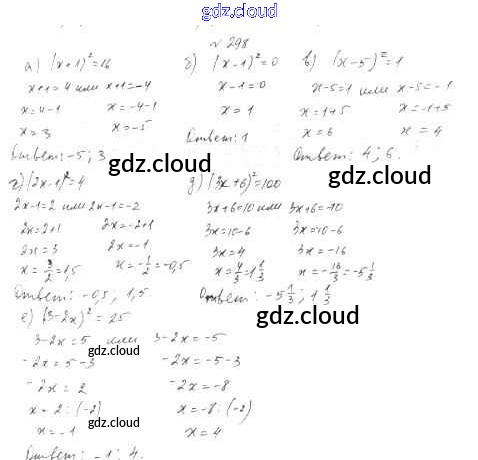 gdz.cloud
№ 298
а) (x+1)²=16
x+1=4 или x+1=-4
x=4-1 x=-4-1
x=3 x=-5
Ответ: -5; 3
б) (x-1)²=0
x-1=0
x=1
Ответ: 1
в) (x-5)²=1
x-5=1 или x-5=-1
x=1+5 x=-1+5
x=6 x=4
Ответ: 4; 6.
gdz.cloud
gdz.cloud
г) (2x-1)²=4
2x-1=2 или 2x-1=-2
2x=2+1 2x=-2+1
2x=3 2x=-1
x=3/2=1,5 x=-1/2=-0,5
Ответ: -0,5; 1,5
д) (3x+6)²=100
3x+6=10 или 3x+6=-10
3x=10-6 3x=-10-6
3x=4 3x=-16
x=4/3=1 1/3 x=-16/3=-5 1/3
Ответ: -5 1/3; 1 1/3
gdz.cloud
е) (3-2x)²=25
3-2x=5 или 3-2x=-5
-2x=5-3 -2x=-5-3
gdz.cloud
-2x=2 -2x=-8
x=2:(-2) x=-8:(-2)
x=-1 x=4
gdz.cloud
Ответ: -1; 4.